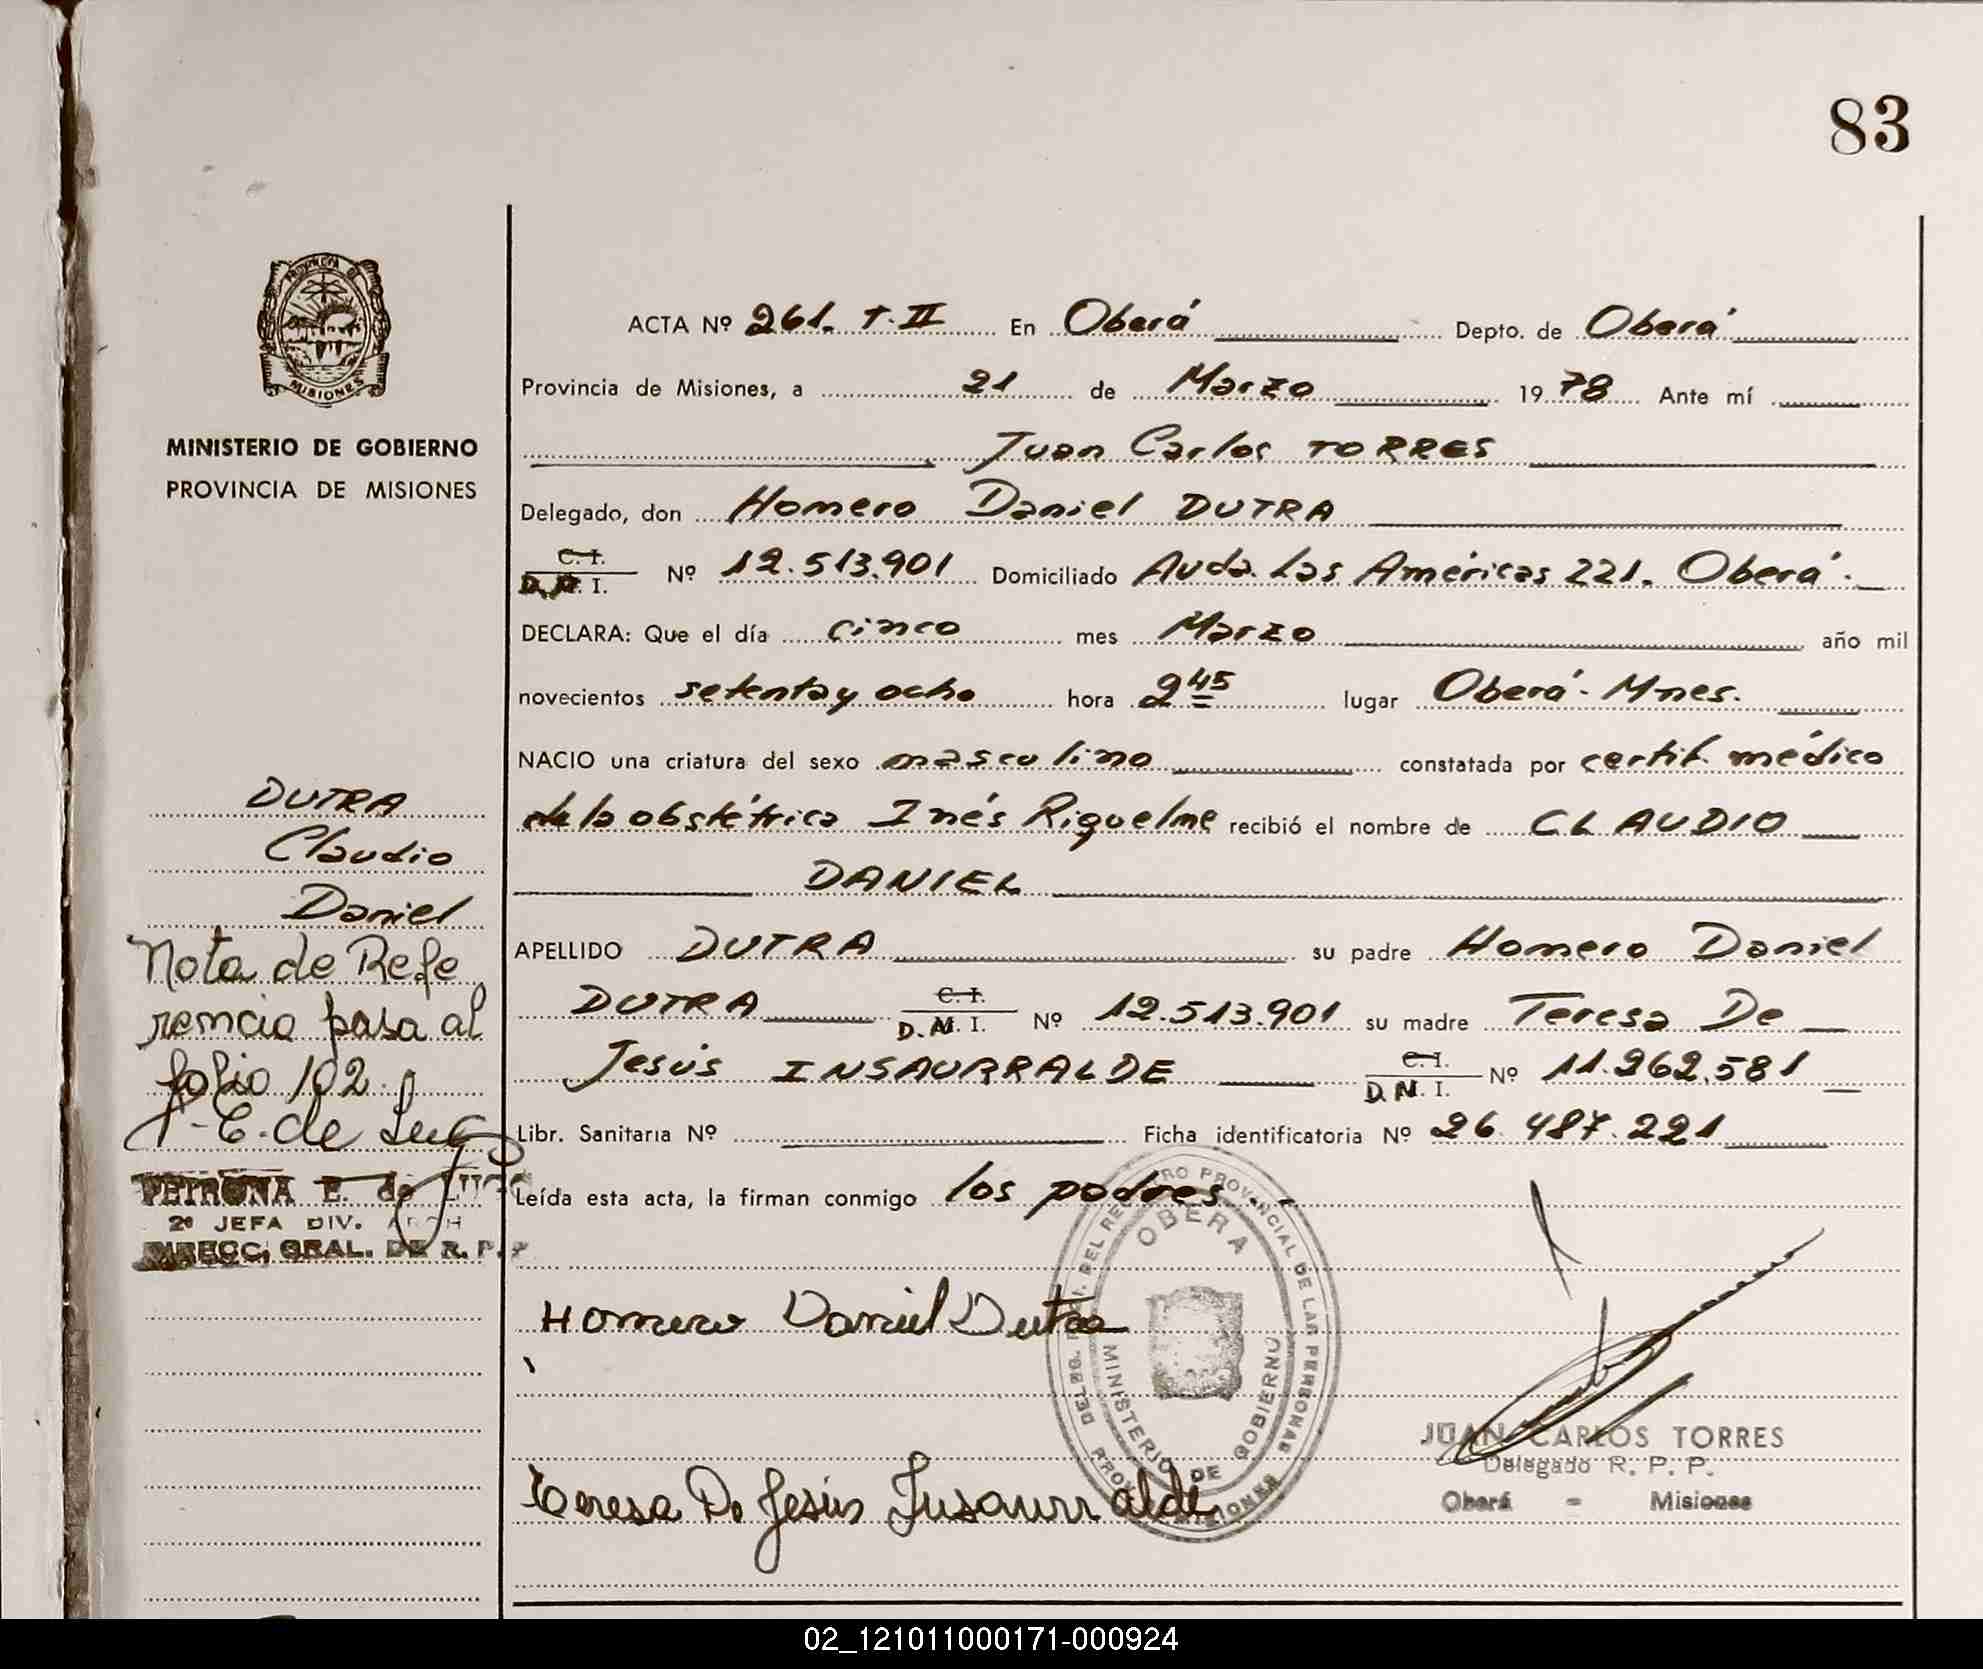 83
PROVINCIA DE
MISIONES
MINISTERIO DE GOBIERNO
PROVINCIA DE MISIONES
ACTA Nº 261. T. II En Oberá Depto. de Oberá
Provincia de Misiones, a 21 de Marzo 1978 Ante mí
Juan Carlos TORRES
Delegado, don Homero Daniel DUTRA
C. I.
D. N. I. Nº 12.513.901 Domiciliado Avda. Las Américas 221. Oberá.
DECLARA: Que el día cinco mes Marzo año mil
novecientos setenta y ocho hora 2 45 lugar Oberá - Mnes.
NACIO una criatura del sexo masculino constatada por certif. médico
de la obstétrica Inés Riquelme recibió el nombre de CLAUDIO
DANIEL
APELLIDO DUTRA su padre Homero Daniel
DUTRA C. I. D. N. I. Nº 12.513.901 su madre Teresa De
Jesús INSAURRALDE C. I. D. N. I. Nº 11.262.581
Libr. Sanitaria Nº Ficha identificatoria Nº 26.487.221
Leída esta acta, la firman conmigo los padres.
DUTRA
Claudio
Daniel
Nota de Refe
rencia pasa al
folio 102
PETRONA E. de
2º JEFA DIV. ARCH
DIRECC. GRAL. DE R. P. P.
Homero Daniel Dutra
Teresa De Jesús Insaurralde
OBERA
MINISTERIO DE GOBIERNO
PROVINCIAL DE LAS PERSONAS
JUAN CARLOS TORRES
Delegado R. P. P.
Oberá - Misiones
02_121011000171-000924